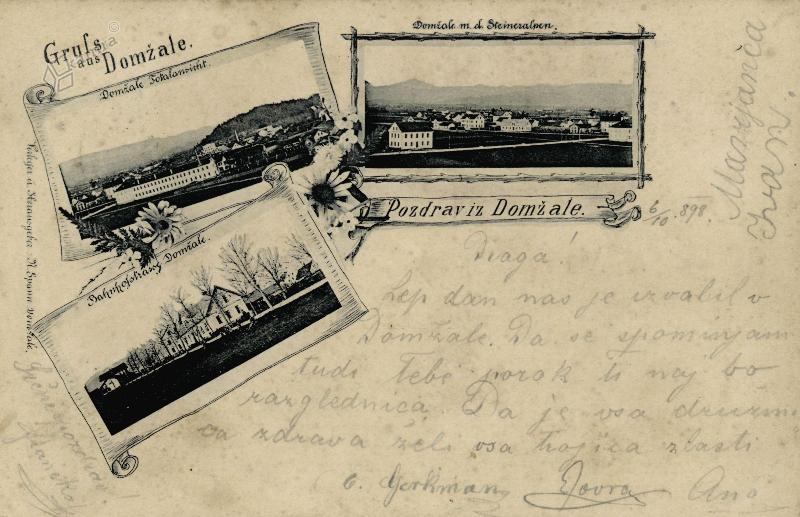 Gruss
aus Domžale.
Domžale Totalansicht.
Domžale m. d. Steineralpen.
Bahnhofstrasse Domžale.
Pozdrav iz Domžale.
6/10. 898.
Draga!
Lep dan nas je izvabil v
Domžale. Da se spominjam
tudi Tebe porok ti naj bo
razglednica. Da je vsa druži
na zdrava želi vsa trojica zlasti
C. Gerkman Ana
Marjanca
Ivan.